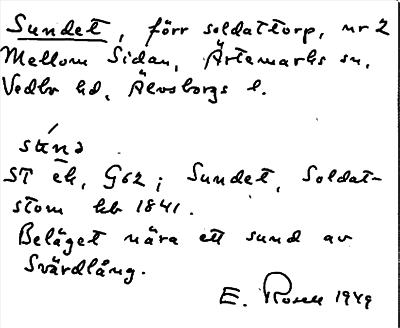 Sundet, förr soldattorp, nr 2
Mellom Sidan, Ärtemarks sn,
Vedbo hd, Älvsborgs l.
ST ek, G62; Sundet, Soldat-
stom hb 1841.
Beläget nära ett sund av
Svärdlång.
E. Rosell 1949